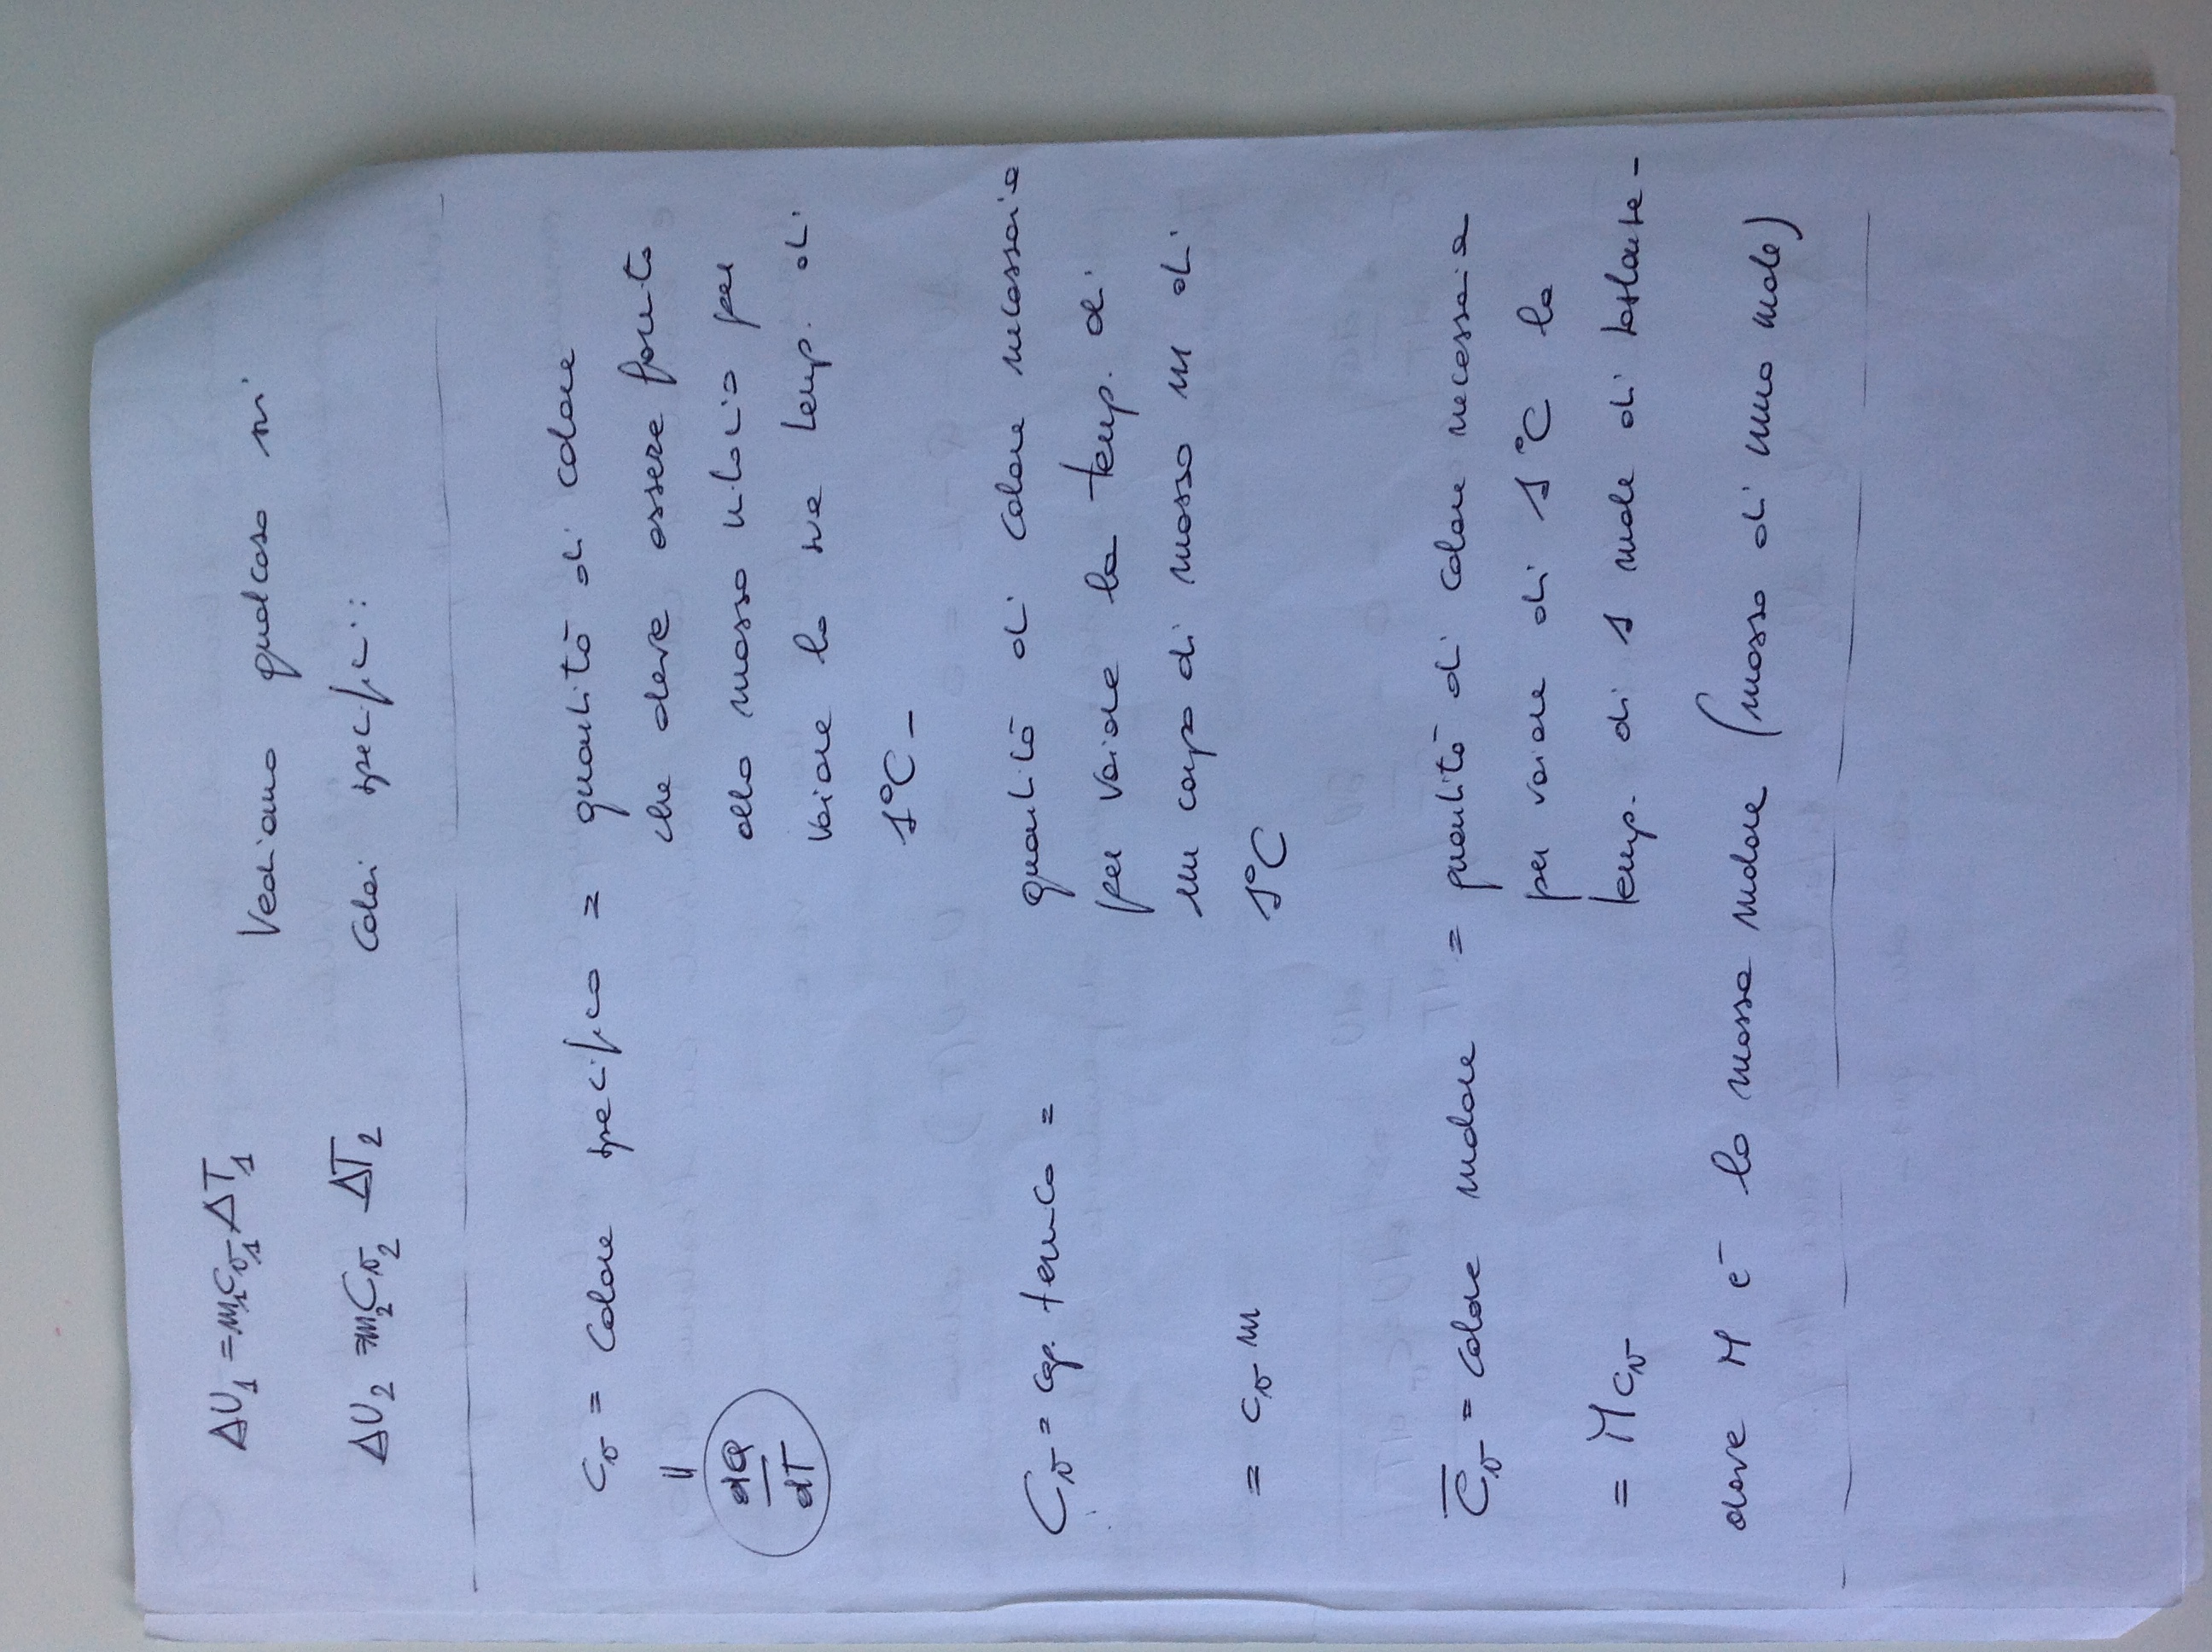 ΔU₁ = m₁c_v₁ ΔT₁
Vediamo qualcosa sui
ΔU₂ = m₂C_v₂ ΔT₂
calori specifici:
c_v = calore specifico = quantità di calore
che deve essere fornito
alla massa unitaria per
variare la sua temp. di
1°C -
= dQ/dT
C_v = cap. termica = quantità di calore necessaria
per variare la temp. di
un corpo di massa m di
1°C
= c_v m
C̅_v = calore molare = quantità di calore necessaria
per variare di 1°C la
temp. di 1 mole di sostanza -
= M c_v
dove M è la massa molare (massa di una mole)